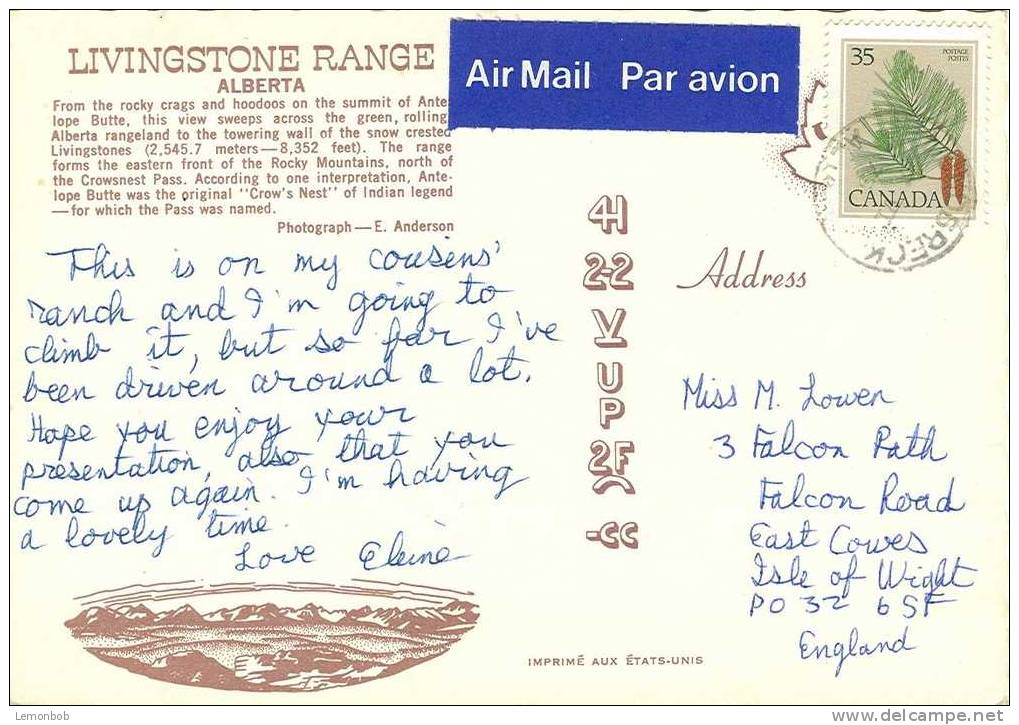 LIVINGSTONE RANGE
ALBERTA
From the rocky crags and hoodoos on the summit of Ante-
lope Butte, this view sweeps across the green, rolling
Alberta rangeland to the towering wall of the snow crested
Livingstones (2,545.7 meters—8,352 feet). The range
forms the eastern front of the Rocky Mountains, north of
the Crowsnest Pass. According to one interpretation, Ante-
lope Butte was the original "Crow's Nest" of Indian legend
—for which the Pass was named.
Photograph—E. Anderson
This is on my cousens'
ranch and I'm going to
climb it, but so far I've
been driven around a lot.
Hope you enjoy your
presentation, also that you
come up again. I'm having
a lovely time.
Love Eleine
Air Mail Par avion
35
POSTAGE
POSTES
CANADA
4H
2-2
V
U
P
2F
-CC
Address
Miss M. Lowen
3 Falcon Path
Falcon Road
East Cowes
Isle of Wight
PO 32 6SF
England
IMPRIMÉ AUX ÉTATS-UNIS
Lemonbob
www.delcampe.net